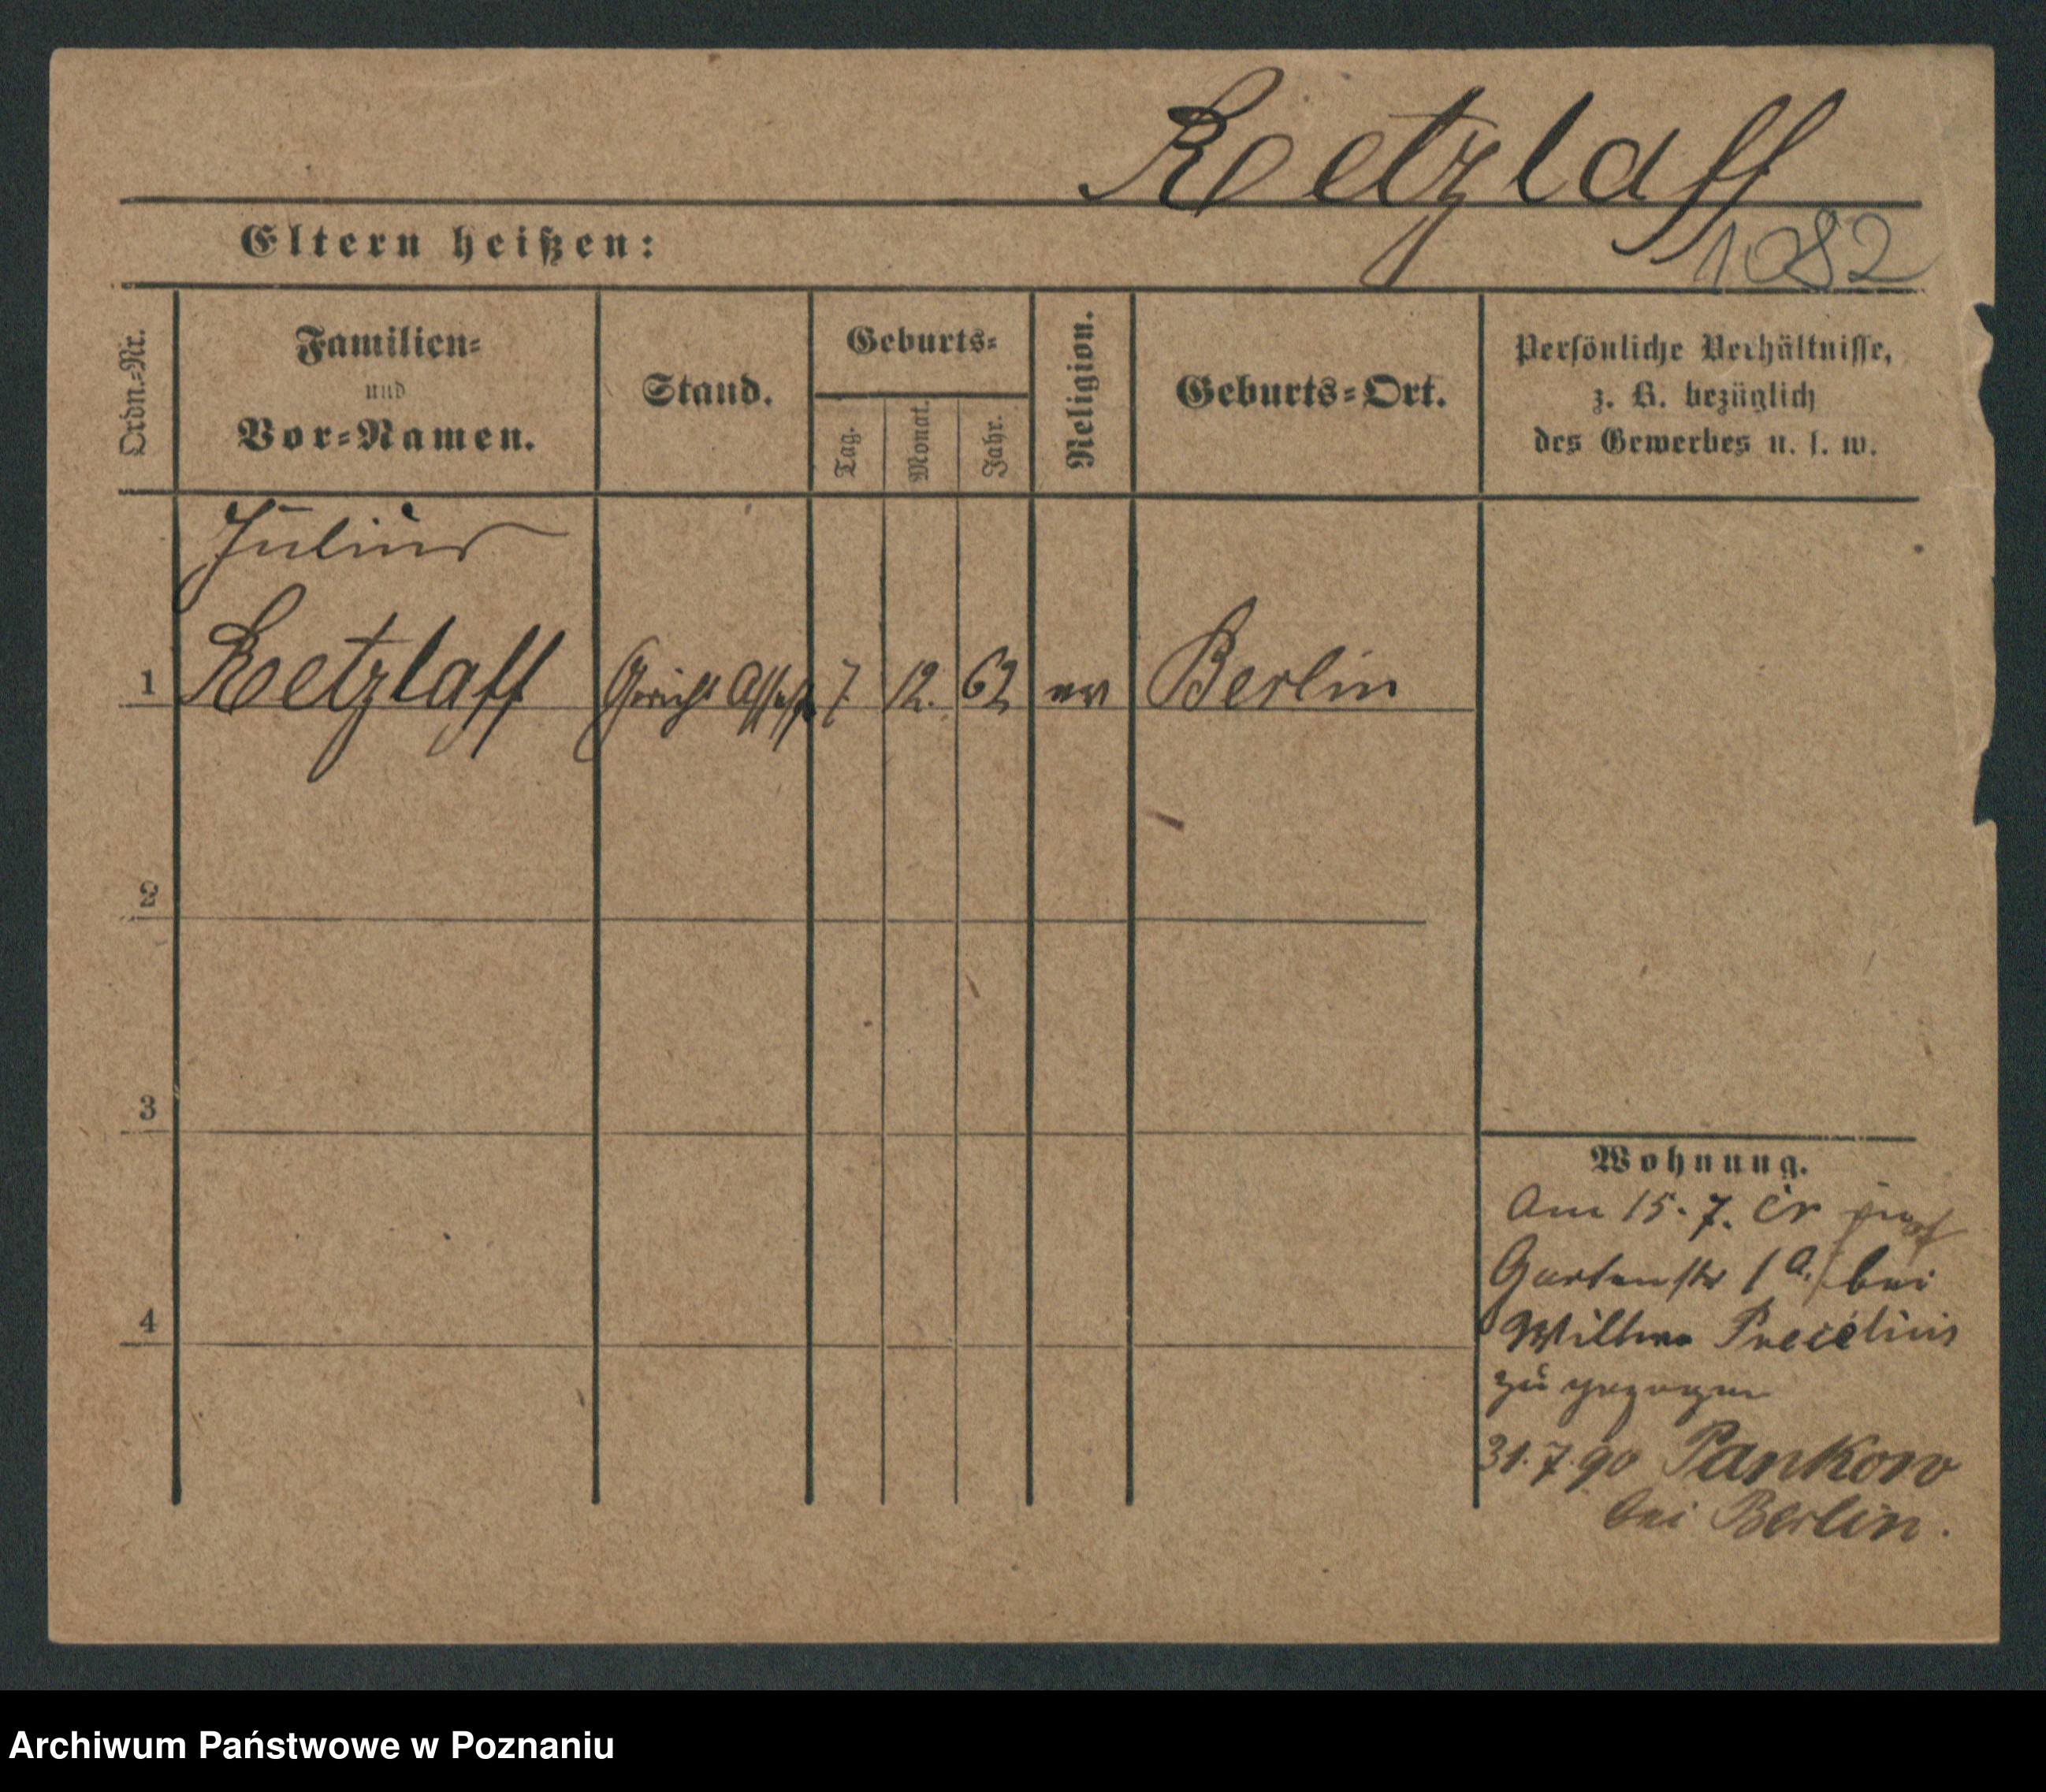 Retzlaff
1082
Eltern heißen:
Ordn.=Nr.
Familien=
und
Vor=Namen.
Stand.
Geburts=
Tag.
Monat.
Jahr.
Religion.
Geburts=Ort.
Persönliche Verhältnisse,
z. B. bezüglich
des Gewerbes u. s. w.
Julius
1 Retzlaff Gericht Assess. 7. 12. 62 ev Berlin
2
3
4
Wohnung.
Am 15. 7. cr
Gartenstr 1a. bei
Wittwe
zu gezogen
31.7.90 Pankow
bei Berlin.
Archiwum Państwowe w Poznaniu